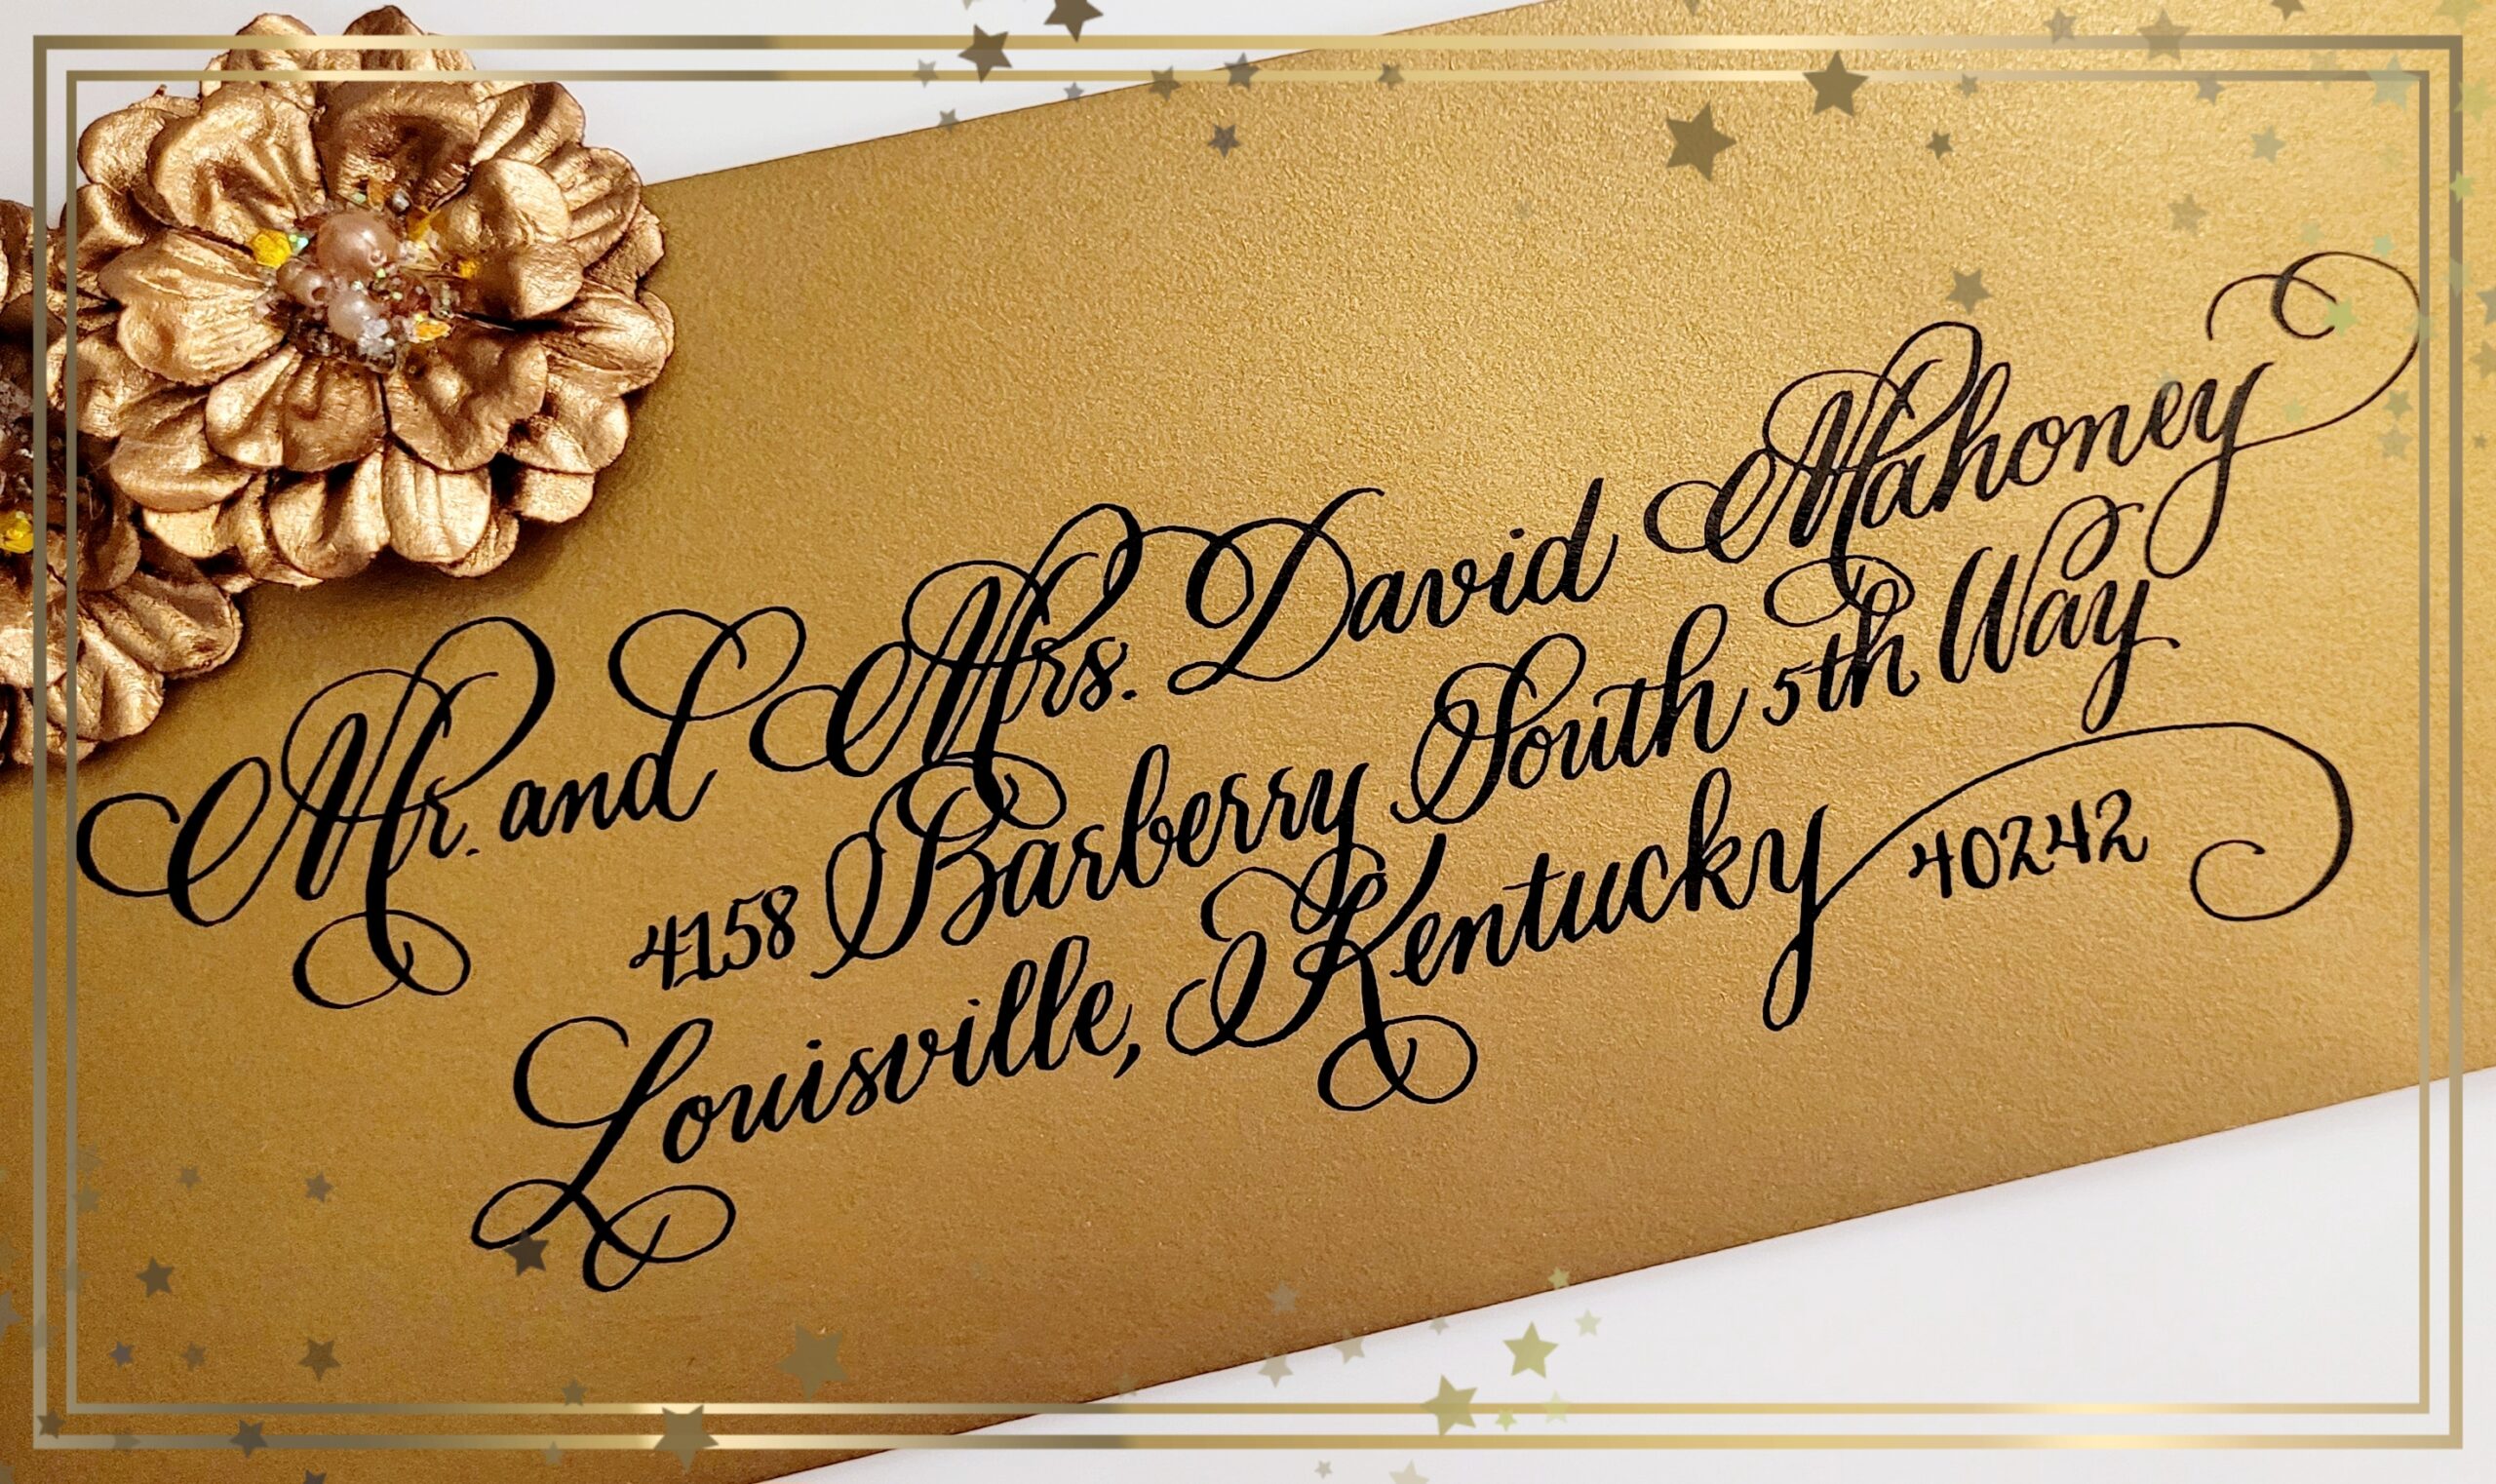 Mr. and Mrs. David Mahoney
4158 Barberry South 5th Way
Louisville, Kentucky 40242